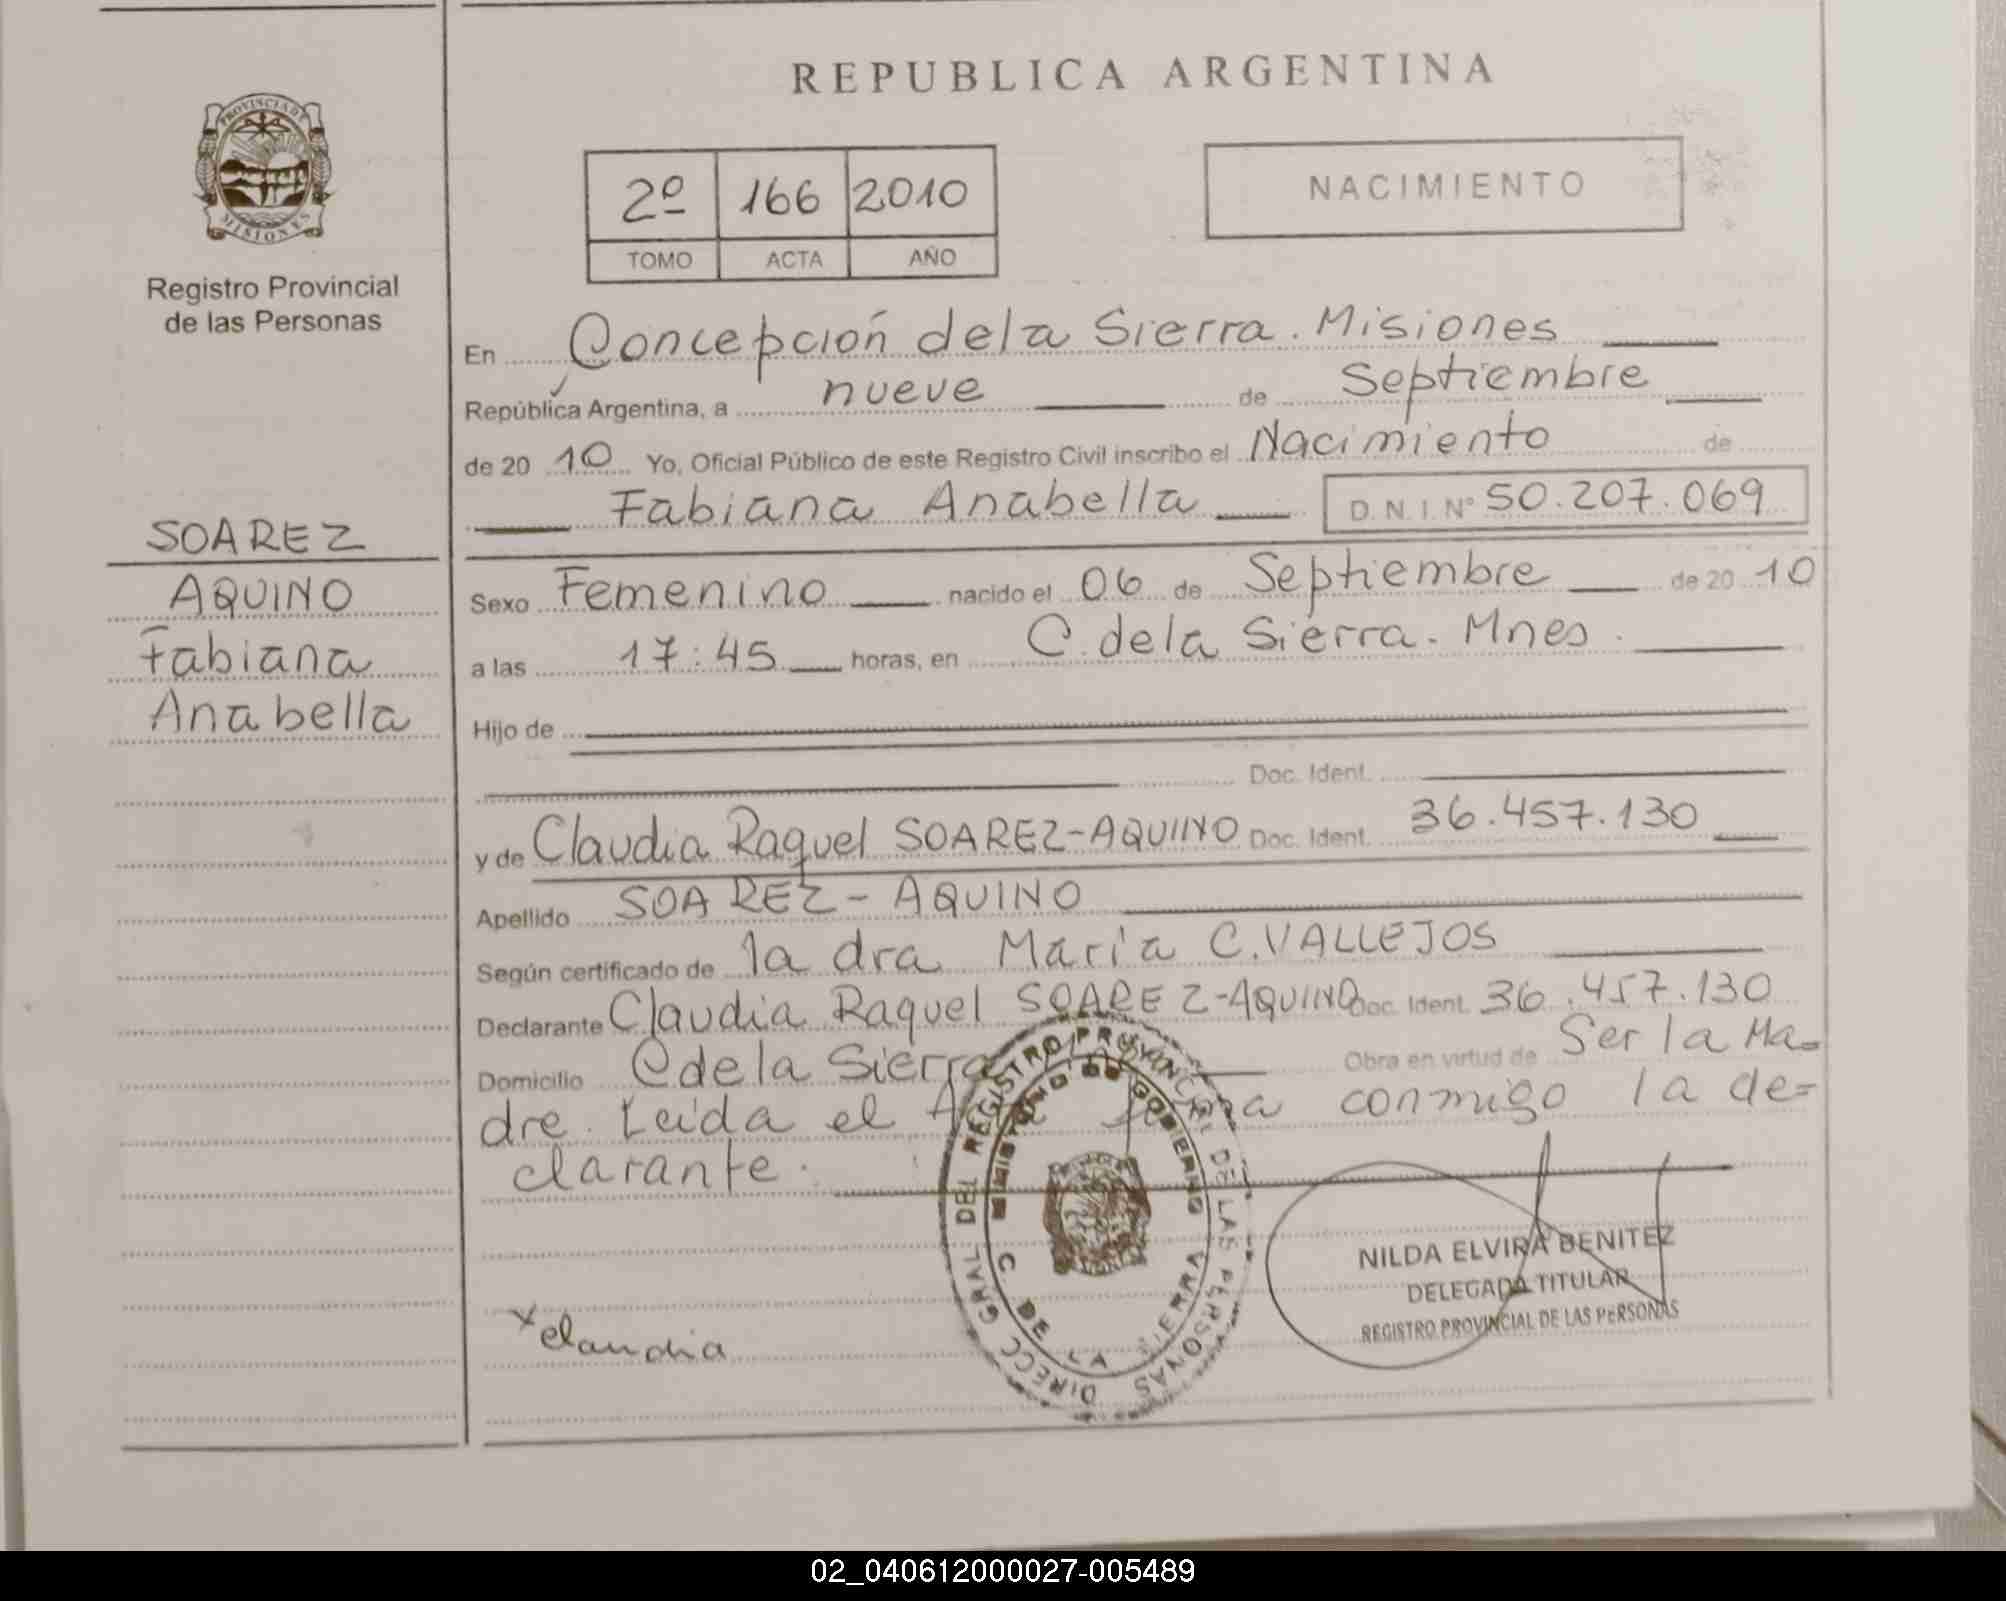 REPUBLICA ARGENTINA
PROVINCIA DE
MISIONES
Registro Provincial
de las Personas
2º 166 2010
TOMO ACTA AÑO
NACIMIENTO
En Concepción dela Sierra. Misiones
República Argentina, a nueve de Septiembre
de 20 10 Yo, Oficial Público de este Registro Civil inscribo el Nacimiento de
Fabiana Anabella D. N. I. Nº 50.207.069
SOAREZ
AQUINO
Fabiana
Anabella
Sexo Femenino nacido el 06 de Septiembre de 20 10
a las 17:45 horas, en C. dela Sierra. Mnes.
Hijo de
Doc. Ident.
y de Claudia Raquel SOAREZ-AQUINO Doc. Ident. 36.457.130
Apellido SOAREZ-AQUINO
Según certificado de la dra María C. VALLEJOS
Declarante Claudia Raquel SOAREZ-AQUINO Doc. Ident. 36.457.130
Domicilio C dela Sierra Obra en virtud de Ser la Ma=
dre. Leida el conmigo la de=
clarante.
DIRECC GRAL DEL REGISTRO PROVINCIAL DE LAS PERSONAS
MINISTERIO DE GOBIERNO
C DE LA SIERRA
x Claudia
NILDA ELVIRA BENITEZ
DELEGADA TITULAR
REGISTRO PROVINCIAL DE LAS PERSONAS
02_040612000027-005489